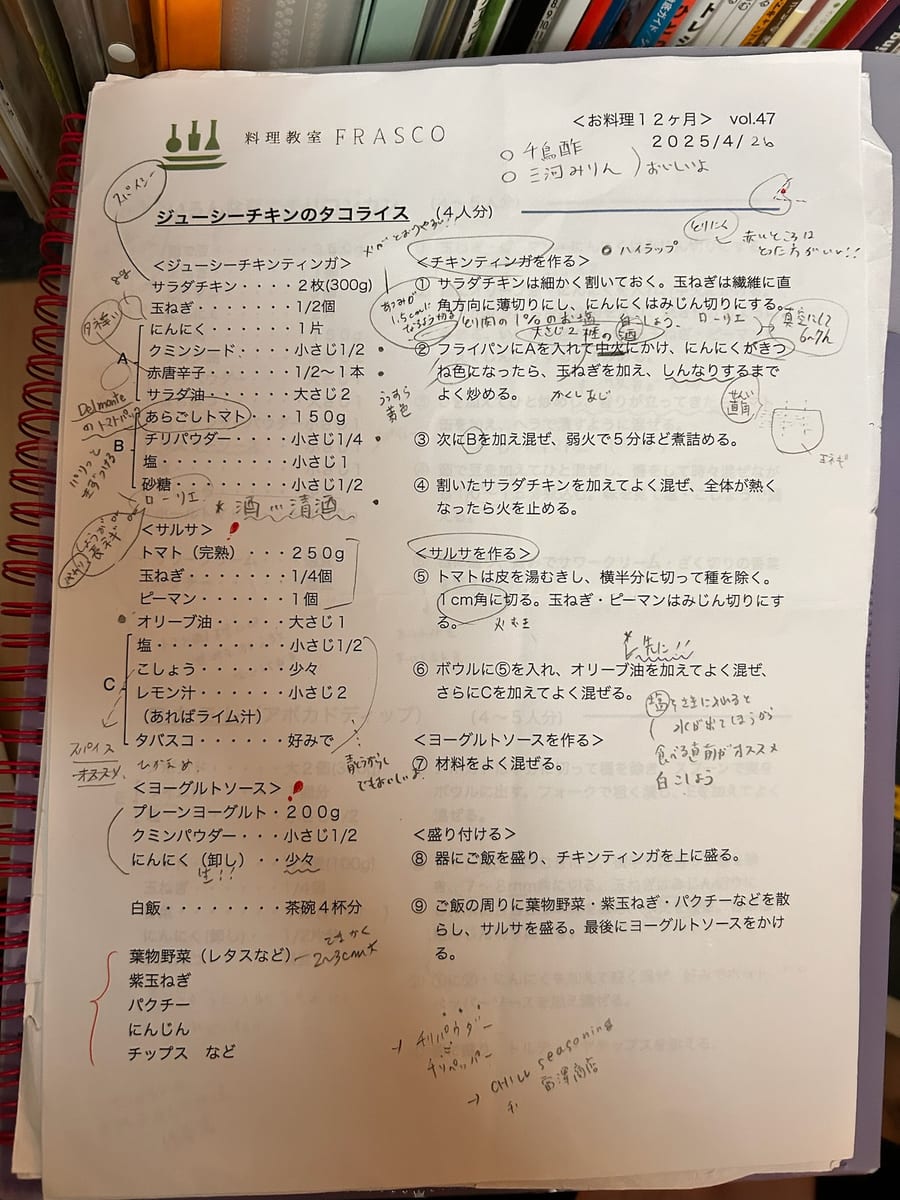 料理教室 FRASCO
＜お料理１２ヶ月＞ vol.47
2025/4/26
○ 千鳥酢
○ 三河みりん
おいしいよ
スパイシー
ジューシーチキンのタコライス （４人分）
とりにく
赤いところは
とった方がいい!!
ハイラップ
＜ジューシーチキンティンガ＞
サラダチキン・・・・２枚(300g)
玉ねぎ・・・・・・・1/2個
A
にんにく・・・・・・１片
クミンシード・・・・小さじ1/2
赤唐辛子・・・・・・1/2〜１本
サラダ油・・・・・・大さじ２
Del monte
のトマトパック
B
あらごしトマト・・・１５０g
チリパウダー・・・・小さじ1/4
塩・・・・・・・・・小さじ１
砂糖・・・・・・・・小さじ1/2
ローリエ
＊酒…清酒
うっすら
黄色
＜サルサ＞
トマト（完熟）・・・２５０g
玉ねぎ・・・・・・・1/4個
ピーマン・・・・・・１個
オリーブ油・・・・・大さじ１
C
塩・・・・・・・・・小さじ1/2
こしょう・・・・・・少々
レモン汁・・・・・・小さじ２
（あればライム汁）
タバスコ・・・・・・好みで
スパイス
オススメ、
ひかえめ、
青とうがらし
でもおいしいよ
＜ヨーグルトソース＞
プレーンヨーグルト・２００g
クミンパウダー・・・小さじ1/2
にんにく（卸し）・・少々
生!!
白飯・・・・・・・・茶碗４杯分
葉物野菜（レタスなど）
2〜3cm大
紫玉ねぎ
パクチー
にんじん
チップス など
＜チキンティンガを作る＞
① サラダチキンは細かく割いておく。玉ねぎは繊維に直
角方向に薄切りにし、にんにくはみじん切りにする。
あつみが
1.5cmに
なるよう切る
とり肉の1%のお塩 白こしょう、ローリエ
大さじ2 の酒
真空にして
② フライパンにAを入れて中火にかけ、にんにくがきつ
ね色になったら、玉ねぎを加え、しんなりするまで
よく炒める。
せんい
直角
玉ネギ
③ 次にBを加え混ぜ、弱火で５分ほど煮詰める。
④ 割いたサラダチキンを加えてよく混ぜ、全体が熱く
なったら火を止める。
＜サルサを作る＞
⑤ トマトは皮を湯むきし、横半分に切って種を除く。
1cm角に切る。玉ねぎ・ピーマンはみじん切りにす
る。
先に!!
⑥ ボウルに⑤を入れ、オリーブ油を加えてよく混ぜ、
さらにCを加えてよく混ぜる。
塩をさきに入れると
水が出てしまうから
食べる直前がオススメ
白こしょう
＜ヨーグルトソースを作る＞
⑦ 材料をよく混ぜる。
＜盛り付ける＞
⑧ 器にご飯を盛り、チキンティンガを上に盛る。
⑨ ご飯の周りに葉物野菜・紫玉ねぎ・パクチーなどを散
らし、サルサを盛る。最後にヨーグルトソースをかけ
る。
→ チリパウダー
チリペッパー
→ CHILI seasoning
富澤商店